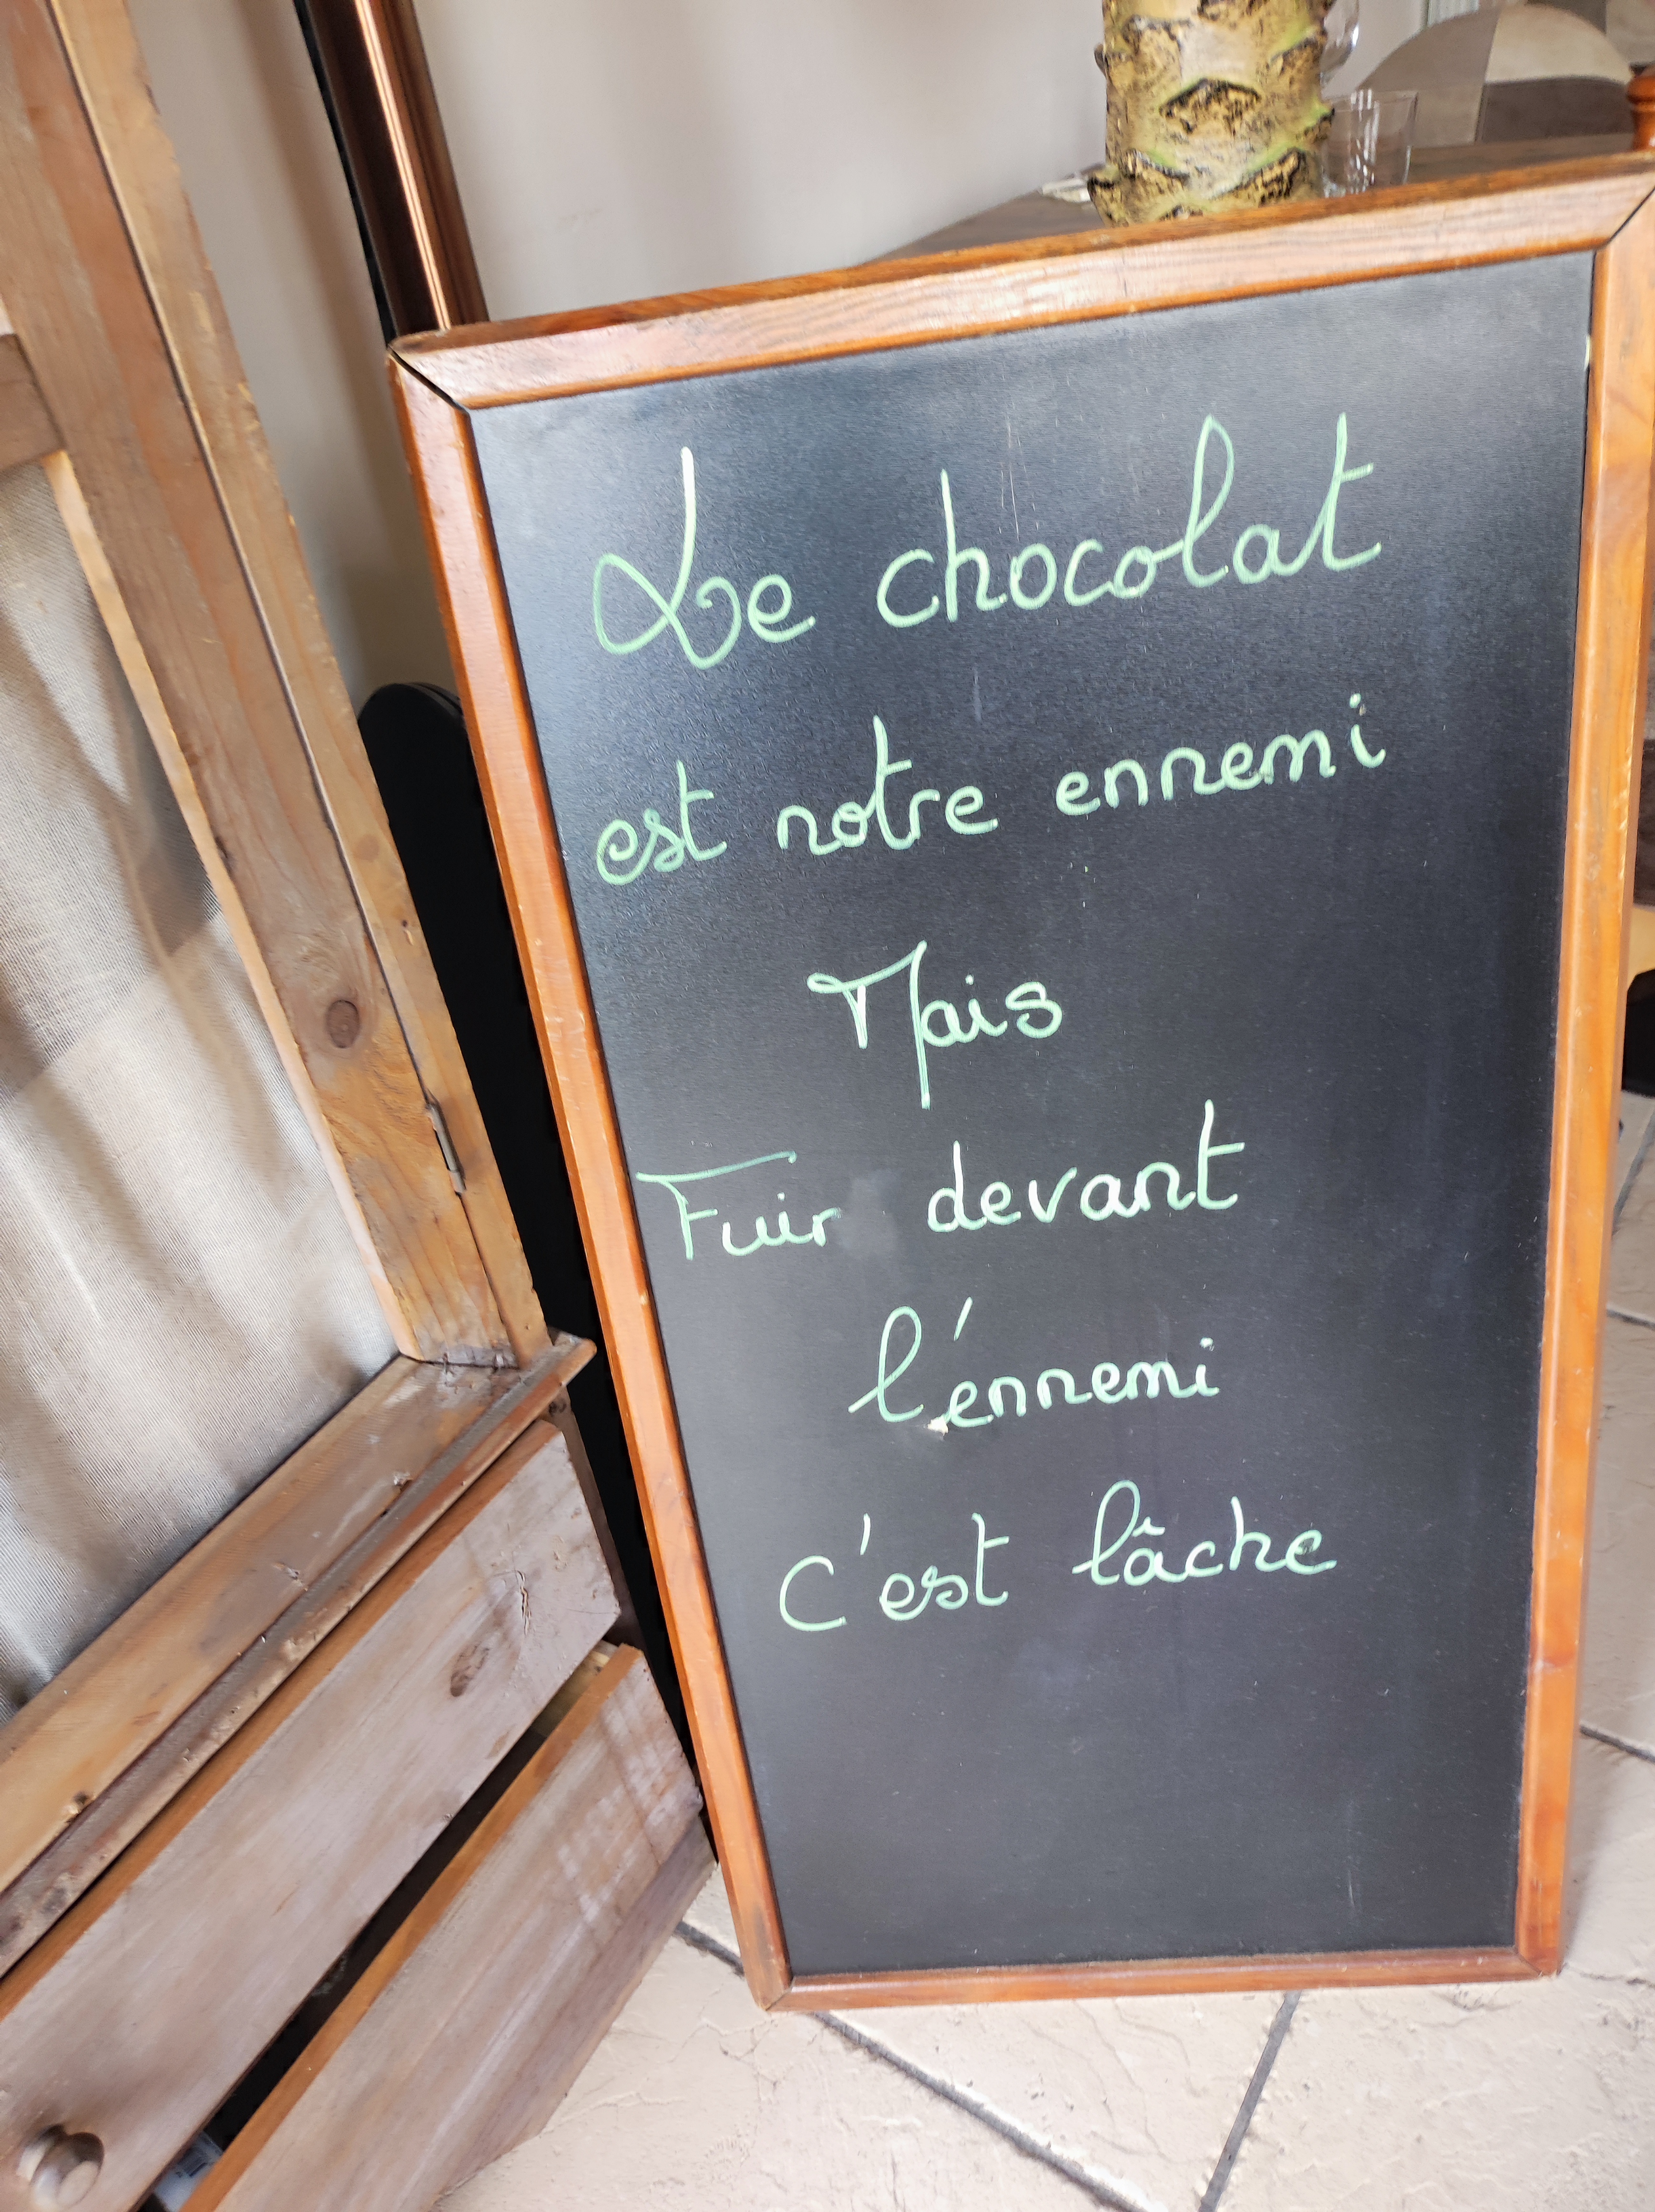 Le chocolat
est notre ennemi
Mais
Fuir devant
l'ennemi
C'est lâche